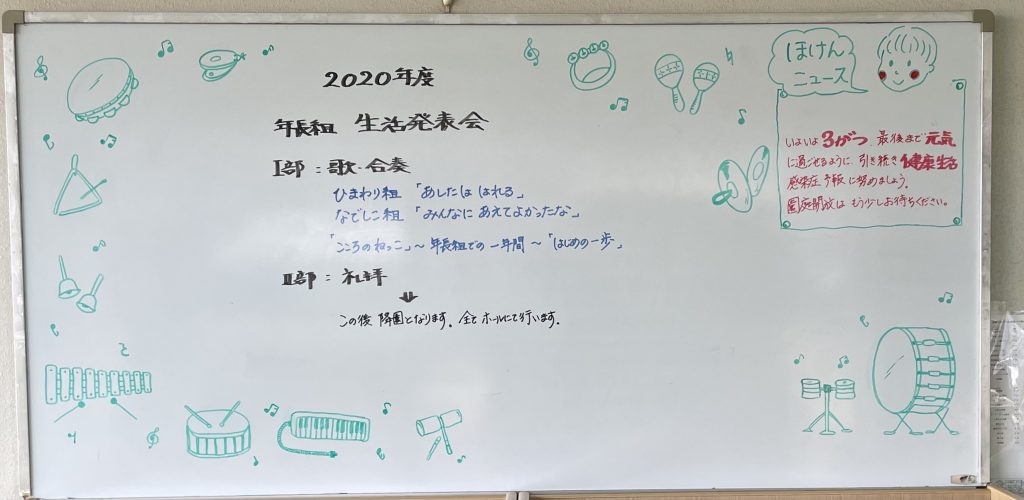 2020年度
年長組 生活発表会
I部:歌・合奏
ひまわり組「あしたははれる」
なでしこ組「みんなにあえてよかったな」
「こころのねっこ」～年長組での一年間～「はじめの一歩」
II部:礼拝
この後 降園となります。全てホールにて行います。
ほけん
ニュース
いよいよ3がつ。最後まで元気
に過ごせるように、引き続き健康生活
感染症予防に努めましょう。
園庭開放はもう少しお待ちください。